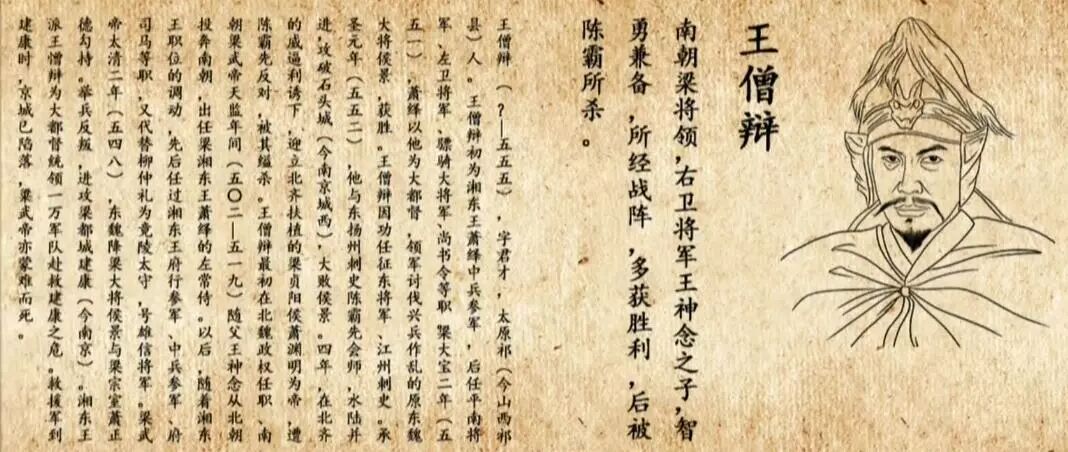 王僧辩
南朝梁将领,右卫将军王神念之子,智
勇兼备,所经战阵,多获胜利,后被
陈霸所杀。
王僧辩(?—五五五),字君才,太原祁(今山西祁
县)人。王僧辩初为湘东王萧绎中兵参军,后任平南将
军、左卫将军、骠骑大将军、尚书令等职。梁大宝二年(五
五一),萧绎以他为大都督,领军讨伐兴兵作乱的原东魏
大将侯景,获胜。王僧辩因功任征东将军、江州刺史。承
圣元年(五五二),他与东扬州刺史陈霸先会师,水陆并
进,攻破石头城(今南京城西),大败侯景。四年,在北齐
的威逼利诱下,迎立北齐扶植的梁贞阳侯萧渊明为帝,遭
陈霸先反对,被其缢杀。王僧辩最初在北魏政权任职,南
朝梁武帝天监年间(五〇二—五一九)随父王神念从北朝
投奔南朝,出任梁湘东王萧绎的左常侍。以后,随着湘东
王职位的调动,先后任过湘东王府行参军、中兵参军、府
司马等职,又代替柳仲礼为竟陵太守,号雄信将军。梁武
帝太清二年(五四八),东魏降梁大将侯景与梁宗室萧正
德勾持。举兵反叛,进攻梁都城建康(今南京)。湘东王
派王憎辩为大都督统领一万军队赴救建康之危。救援军到
建康时,京城已陷落,梁武帝亦蒙难而死。